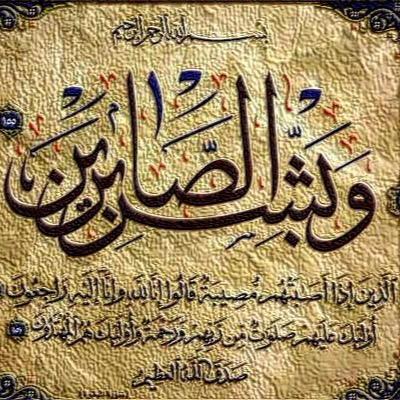 بسم الله الرحمن الرحيم
وَبَشِّرِ الصَّابِرِينَ ١٥٥
الَّذِينَ إِذَا أَصَابَتْهُم مُّصِيبَةٌ قَالُوا إِنَّا لِلَّهِ وَإِنَّا إِلَيْهِ رَاجِعُونَ
أُولَٰئِكَ عَلَيْهِمْ صَلَوَاتٌ مِّن رَّبِّهِمْ وَرَحْمَةٌ وَأُولَٰئِكَ هُمُ الْمُهْتَدُونَ
صدق الله العظيم